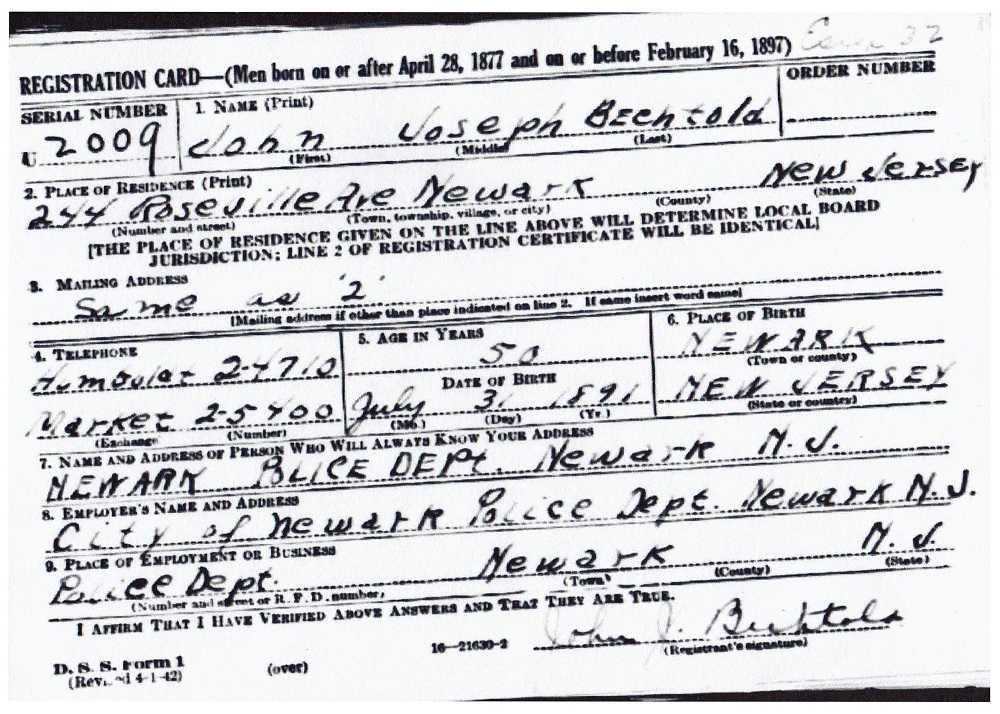 32
REGISTRATION CARD—(Men born on or after April 28, 1877 and on or before February 16, 1897)
SERIAL NUMBER
1. NAME (Print)
ORDER NUMBER
U 2009
John Joseph Bechtold
(First) (Middle) (Last)
2. PLACE OF RESIDENCE (Print)
244 Roseville Ave Newark New Jersey
(Number and street) (Town, township, village, or city) (County) (State)
[THE PLACE OF RESIDENCE GIVEN ON THE LINE ABOVE WILL DETERMINE LOCAL BOARD
JURISDICTION; LINE 2 OF REGISTRATION CERTIFICATE WILL BE IDENTICAL]
3. MAILING ADDRESS
Same as '2'
[Mailing address if other than place indicated on line 2. If same insert word same]
4. TELEPHONE
Humboldt 2-4710
Market 2-5400
(Exchange) (Number)
5. AGE IN YEARS
50
DATE OF BIRTH
July 31 1891
(Mo.) (Day) (Yr.)
6. PLACE OF BIRTH
NEWARK
(Town or county)
NEW JERSEY
(State or country)
7. NAME AND ADDRESS OF PERSON WHO WILL ALWAYS KNOW YOUR ADDRESS
NEWARK POLICE DEPT. Newark N.J.
8. EMPLOYER'S NAME AND ADDRESS
City of Newark Police Dept. Newark N.J.
9. PLACE OF EMPLOYMENT OR BUSINESS
Police Dept. Newark N.J.
(Number and street or R. F. D. number) (Town) (County) (State)
I AFFIRM THAT I HAVE VERIFIED ABOVE ANSWERS AND THAT THEY ARE TRUE.
John J. Bechtold
D. S. S. Form 1
(Revised 4-1-42)
(over)
16—21630-2
(Registrant's signature)